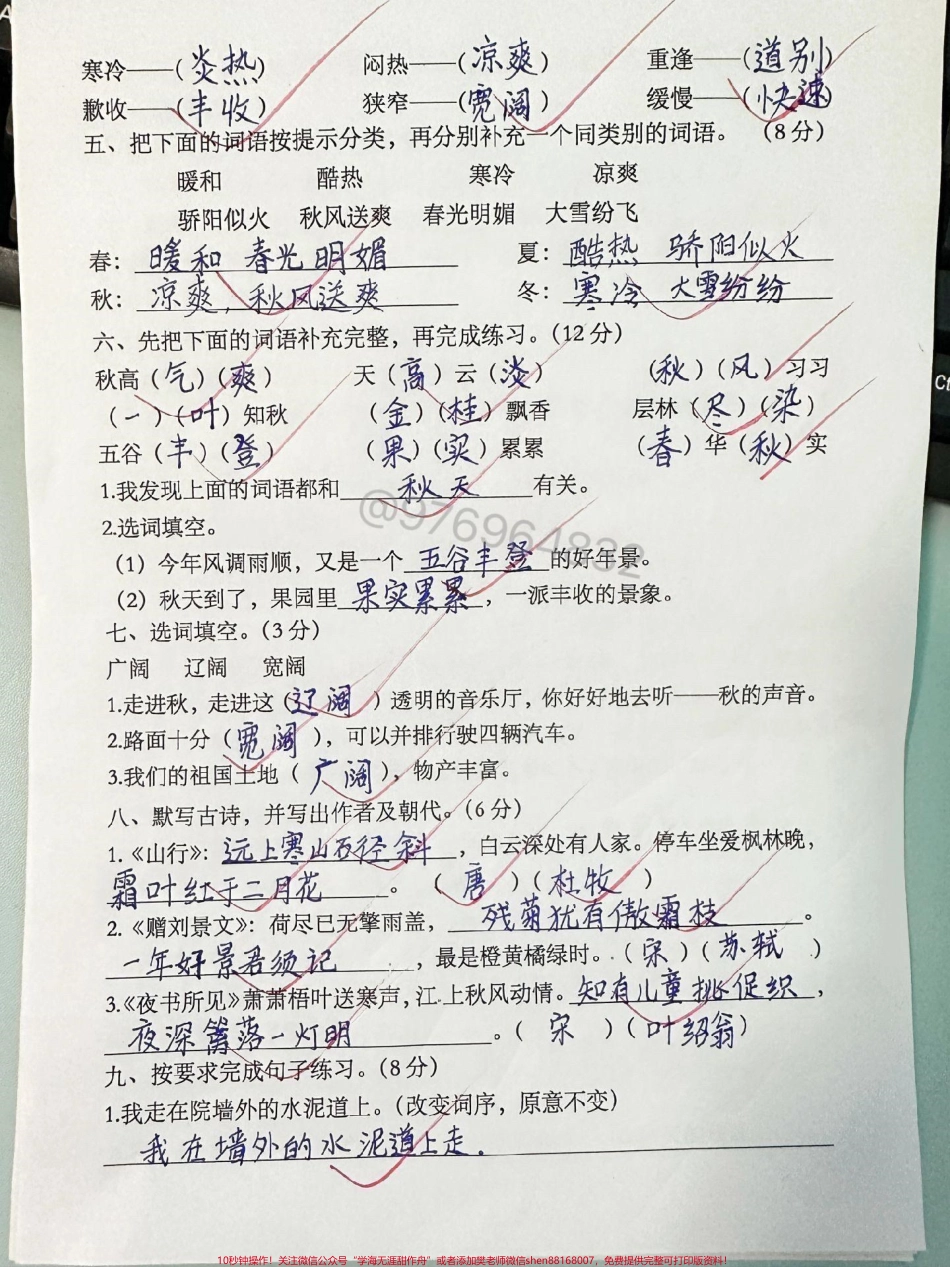 寒冷——(炎热) 闷热——(凉爽) 重逢——(道别)
歉收——(丰收) 狭窄——(宽阔) 缓慢——(快速)
五、把下面的词语按提示分类，再分别补充一个同类别的词语。 (8分)
暖和 酷热 寒冷 凉爽
骄阳似火 秋风送爽 春光明媚 大雪纷飞
春：暖和 春光明媚 夏：酷热 骄阳似火
秋：凉爽，秋风送爽 冬：寒冷 大雪纷纷
六、先把下面的词语补充完整，再完成练习。(12分)
秋高（气）（爽） 天（高）云（淡） （秋）（风）习习
（一）（叶）知秋 （金）（桂）飘香 层林（尽）（染）
五谷（丰）（登） （果）（实）累累 （春）华（秋）实
1.我发现上面的词语都和秋天有关。
2.选词填空。
（1）今年风调雨顺，又是一个五谷丰登的好年景。
（2）秋天到了，果园里果实累累，一派丰收的景象。
七、选词填空。(3分)
广阔 辽阔 宽阔
1.走进秋，走进这（辽阔）透明的音乐厅，你好好地去听——秋的声音。
2.路面十分（宽阔），可以并排行驶四辆汽车。
3.我们的祖国土地（广阔），物产丰富。
八、默写古诗，并写出作者及朝代。(6分)
1.《山行》：远上寒山石径斜，白云深处有人家。停车坐爱枫林晚，
霜叶红于二月花。（唐）（杜牧）
2.《赠刘景文》：荷尽已无擎雨盖，残菊犹有傲霜枝。
一年好景君须记，最是橙黄橘绿时。（宋）（苏轼）
3.《夜书所见》萧萧梧叶送寒声，江上秋风动客情。知有儿童挑促织，
夜深篱落一灯明。（宋）（叶绍翁）
九、按要求完成句子练习。(8分)
1.我走在院墙外的水泥道上。（改变词序，原意不变）
我在墙外的水泥道上走.
@976964832
10秒钟操作！关注微信公众号“学海无涯甜作舟”或者添加樊老师微信shen88168007，免费提供完整可打印版资料！